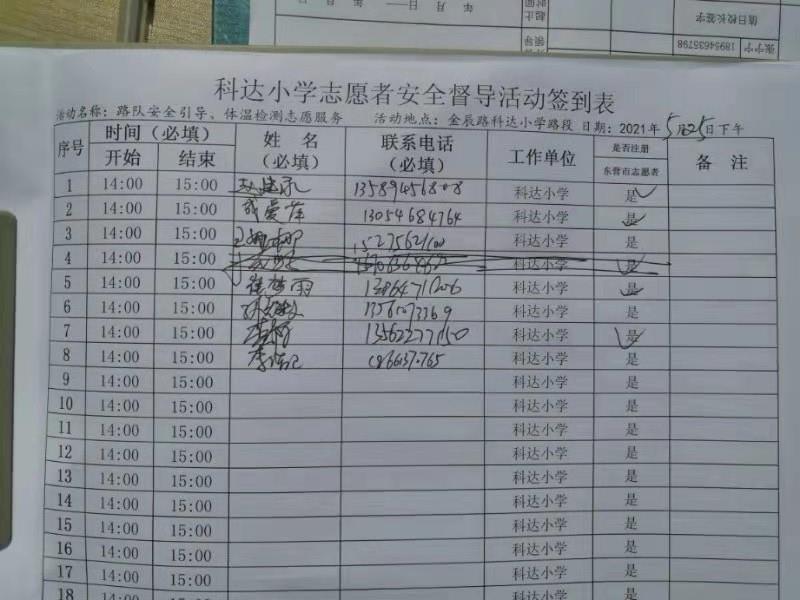 张宁宁 18954635798
值日校长签字
科达小学志愿者安全督导活动签到表
活动名称：路队安全引导、体温检测志愿服务 活动地点：金辰路科达小学路段 日期：2021年5月25日下午
序号 时间（必填） 姓 名（必填） 联系电话（必填） 工作单位 是否注册东营市志愿者 备 注
开始 结束
1 14:00 15:00 13589456808 科达小学 是
2 14:00 15:00 成爱萍 13054684764 科达小学 是
3 14:00 15:00 15275621100 科达小学 是
4 14:00 15:00 科达小学 是
5 14:00 15:00 崔梦雨 科达小学 是
6 14:00 15:00 科达小学 是
7 14:00 15:00 科达小学 是
8 14:00 15:00 科达小学 是
9 14:00 15:00 科达小学 是
10 14:00 15:00 科达小学 是
11 14:00 15:00 科达小学 是
12 14:00 15:00 科达小学 是
13 14:00 15:00 科达小学 是
14 14:00 15:00 科达小学 是
15 14:00 15:00 科达小学 是
16 14:00 15:00 科达小学 是
17 14:00 15:00 科达小学 是
18 14:00 15:00 科达小学 是